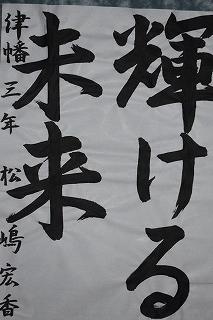 輝ける
未来
津幡 三年 松嶋宏香